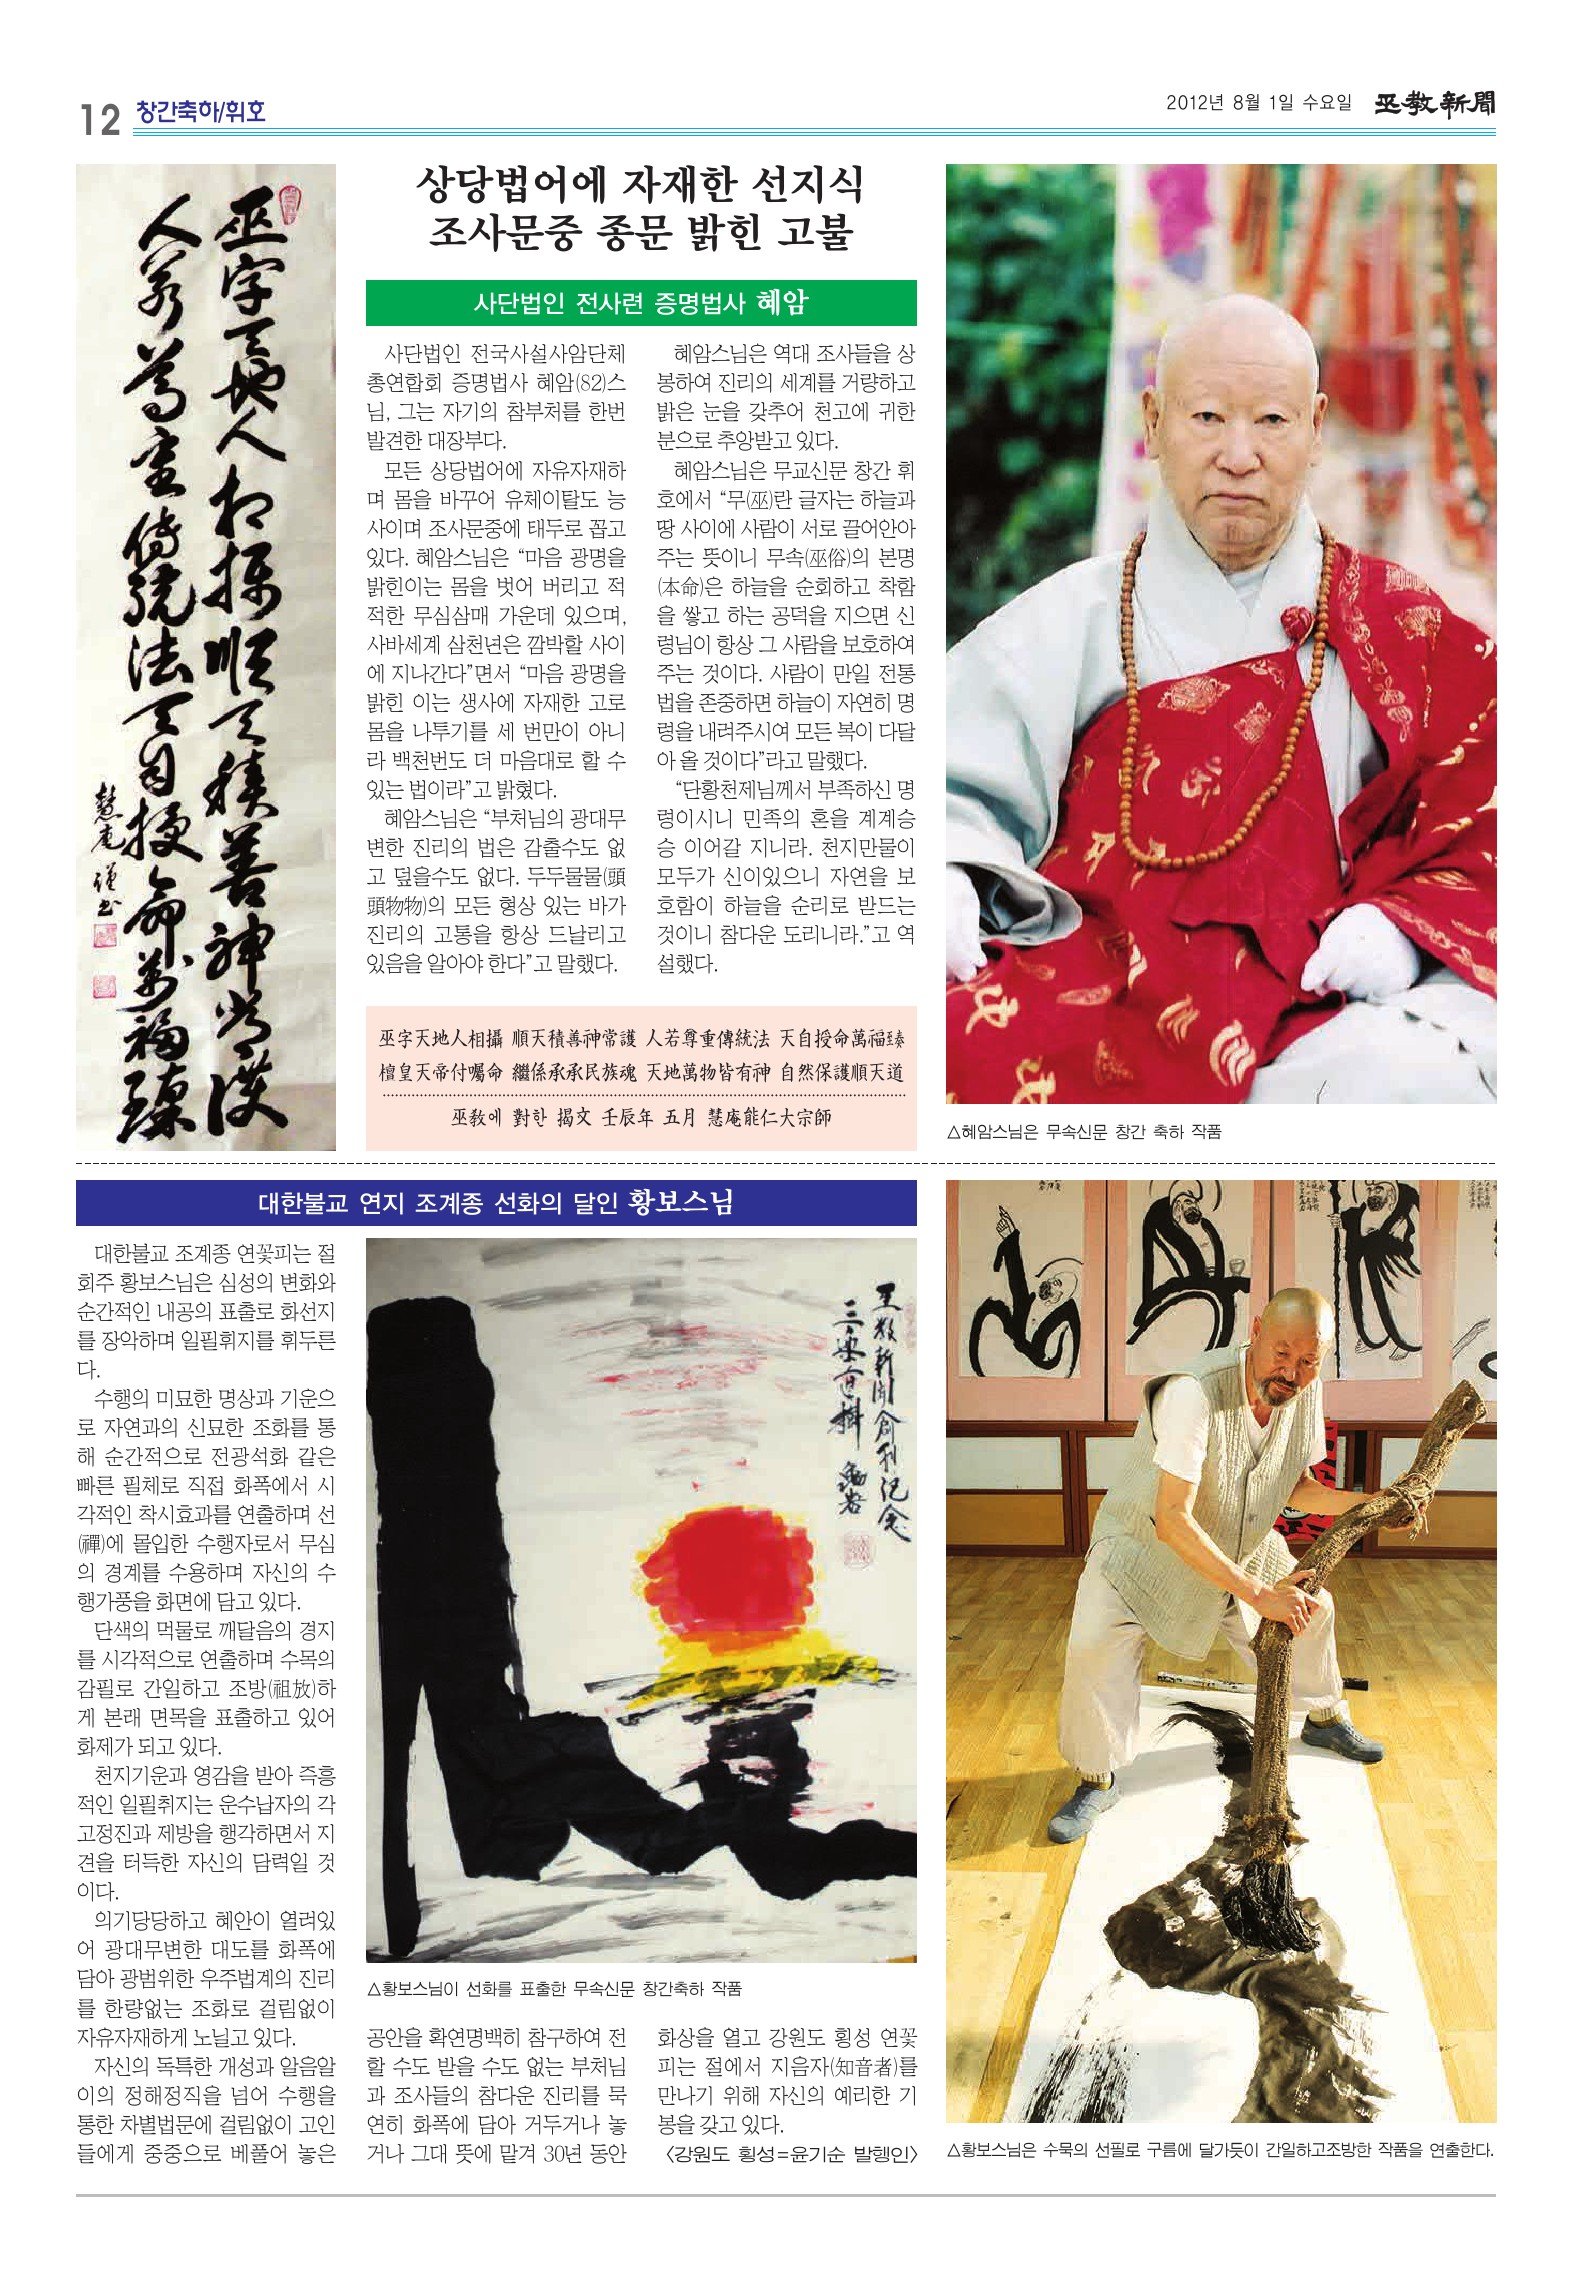 12 창간축하/휘호
2012년 8월 1일 수요일 巫敎新聞
상당법어에 자재한 선지식
조사문중 종문 밝힌 고불
사단법인 전사련 증명법사 혜암
사단법인 전국사설사암단체
총연합회 증명법사 혜암(82)스
님, 그는 자기의 참부처를 한번
발견한 대장부다.
모든 상당법어에 자유자재하
며 몸을 바꾸어 유체이탈도 능
사이며 조사문중에 태두로 꼽고
있다. 혜암스님은 “마음 광명을
밝힌이는 몸을 벗어 버리고 적
적한 무심삼매 가운데 있으며,
사바세계 삼천년은 깜박할 사이
에 지나간다”면서 “마음 광명을
밝힌 이는 생사에 자재한 고로
몸을 나투기를 세 번만이 아니
라 백천번도 더 마음대로 할 수
있는 법이라”고 밝혔다.
혜암스님은 “부처님의 광대무
변한 진리의 법은 감출수도 없
고 덮을수도 없다. 두두물물(頭
頭物物)의 모든 형상 있는 바가
진리의 고통을 항상 드날리고
있음을 알아야 한다”고 말했다.
혜암스님은 역대 조사들을 상
봉하여 진리의 세계를 거량하고
밝은 눈을 갖추어 천고에 귀한
분으로 추앙받고 있다.
혜암스님은 무교신문 창간 휘
호에서 “무(巫)란 글자는 하늘과
땅 사이에 사람이 서로 끌어안아
주는 뜻이니 무속(巫俗)의 본명
(本命)은 하늘을 순회하고 착함
을 쌓고 하는 공덕을 지으면 신
령님이 항상 그 사람을 보호하여
주는 것이다. 사람이 만일 전통
법을 존중하면 하늘이 자연히 명
령을 내려주시여 모든 복이 다달
아 올 것이다”라고 말했다.
“단황천제님께서 부족하신 명
령이시니 민족의 혼을 계계승
승 이어갈 지니라. 천지만물이
모두가 신이있으니 자연을 보
호함이 하늘을 순리로 받드는
것이니 참다운 도리니라.”고 역
설했다.
巫字天地人相攝 順天積善神常護 人若尊重傳統法 天自授命萬福臻
檀皇天帝付囑命 繼係承承民族魂 天地萬物皆有神 自然保護順天道
巫敎에 對한 揭文 壬辰年 五月 慧庵能仁大宗師
巫字天地人相攝順天積善神常護
人若尊重傳統法天自授命萬福臻
慧庵 謹書
△혜암스님은 무속신문 창간 축하 작품
대한불교 연지 조계종 선화의 달인 황보스님
대한불교 조계종 연꽃피는 절
회주 황보스님은 심성의 변화와
순간적인 내공의 표출로 화선지
를 장악하며 일필휘지를 휘두른
다.
수행의 미묘한 명상과 기운으
로 자연과의 신묘한 조화를 통
해 순간적으로 전광석화 같은
빠른 필체로 직접 화폭에서 시
각적인 착시효과를 연출하며 선
(禪)에 몰입한 수행자로서 무심
의 경계를 수용하며 자신의 수
행가풍을 화면에 담고 있다.
단색의 먹물로 깨달음의 경지
를 시각적으로 연출하며 수목의
감필로 간일하고 조방(祖放)하
게 본래 면목을 표출하고 있어
화제가 되고 있다.
천지기운과 영감을 받아 즉흥
적인 일필취지는 운수납자의 각
고정진과 제방을 행각하면서 지
견을 터득한 자신의 담력일 것
이다.
의기당당하고 혜안이 열려있
어 광대무변한 대도를 화폭에
담아 광범위한 우주법계의 진리
를 한량없는 조화로 걸림없이
자유자재하게 노닐고 있다.
자신의 독특한 개성과 알음알
이의 정해정직을 넘어 수행을
통한 차별법문에 걸림없이 고인
들에게 중중으로 베풀어 놓은
巫敎新聞創刊記念
△황보스님이 선화를 표출한 무속신문 창간축하 작품
공안을 확연명백히 참구하여 전
할 수도 받을 수도 없는 부처님
과 조사들의 참다운 진리를 묵
연히 화폭에 담아 거두거나 놓
거나 그대 뜻에 맡겨 30년 동안
화상을 열고 강원도 횡성 연꽃
피는 절에서 지음자(知音者)를
만나기 위해 자신의 예리한 기
봉을 갖고 있다.
〈강원도 횡성=윤기순 발행인〉
△황보스님은 수묵의 선필로 구름에 달가듯이 간일하고조방한 작품을 연출한다.